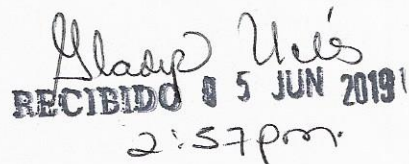 Gladys
RECIBIDO 05 JUN 2019
2:57pm.